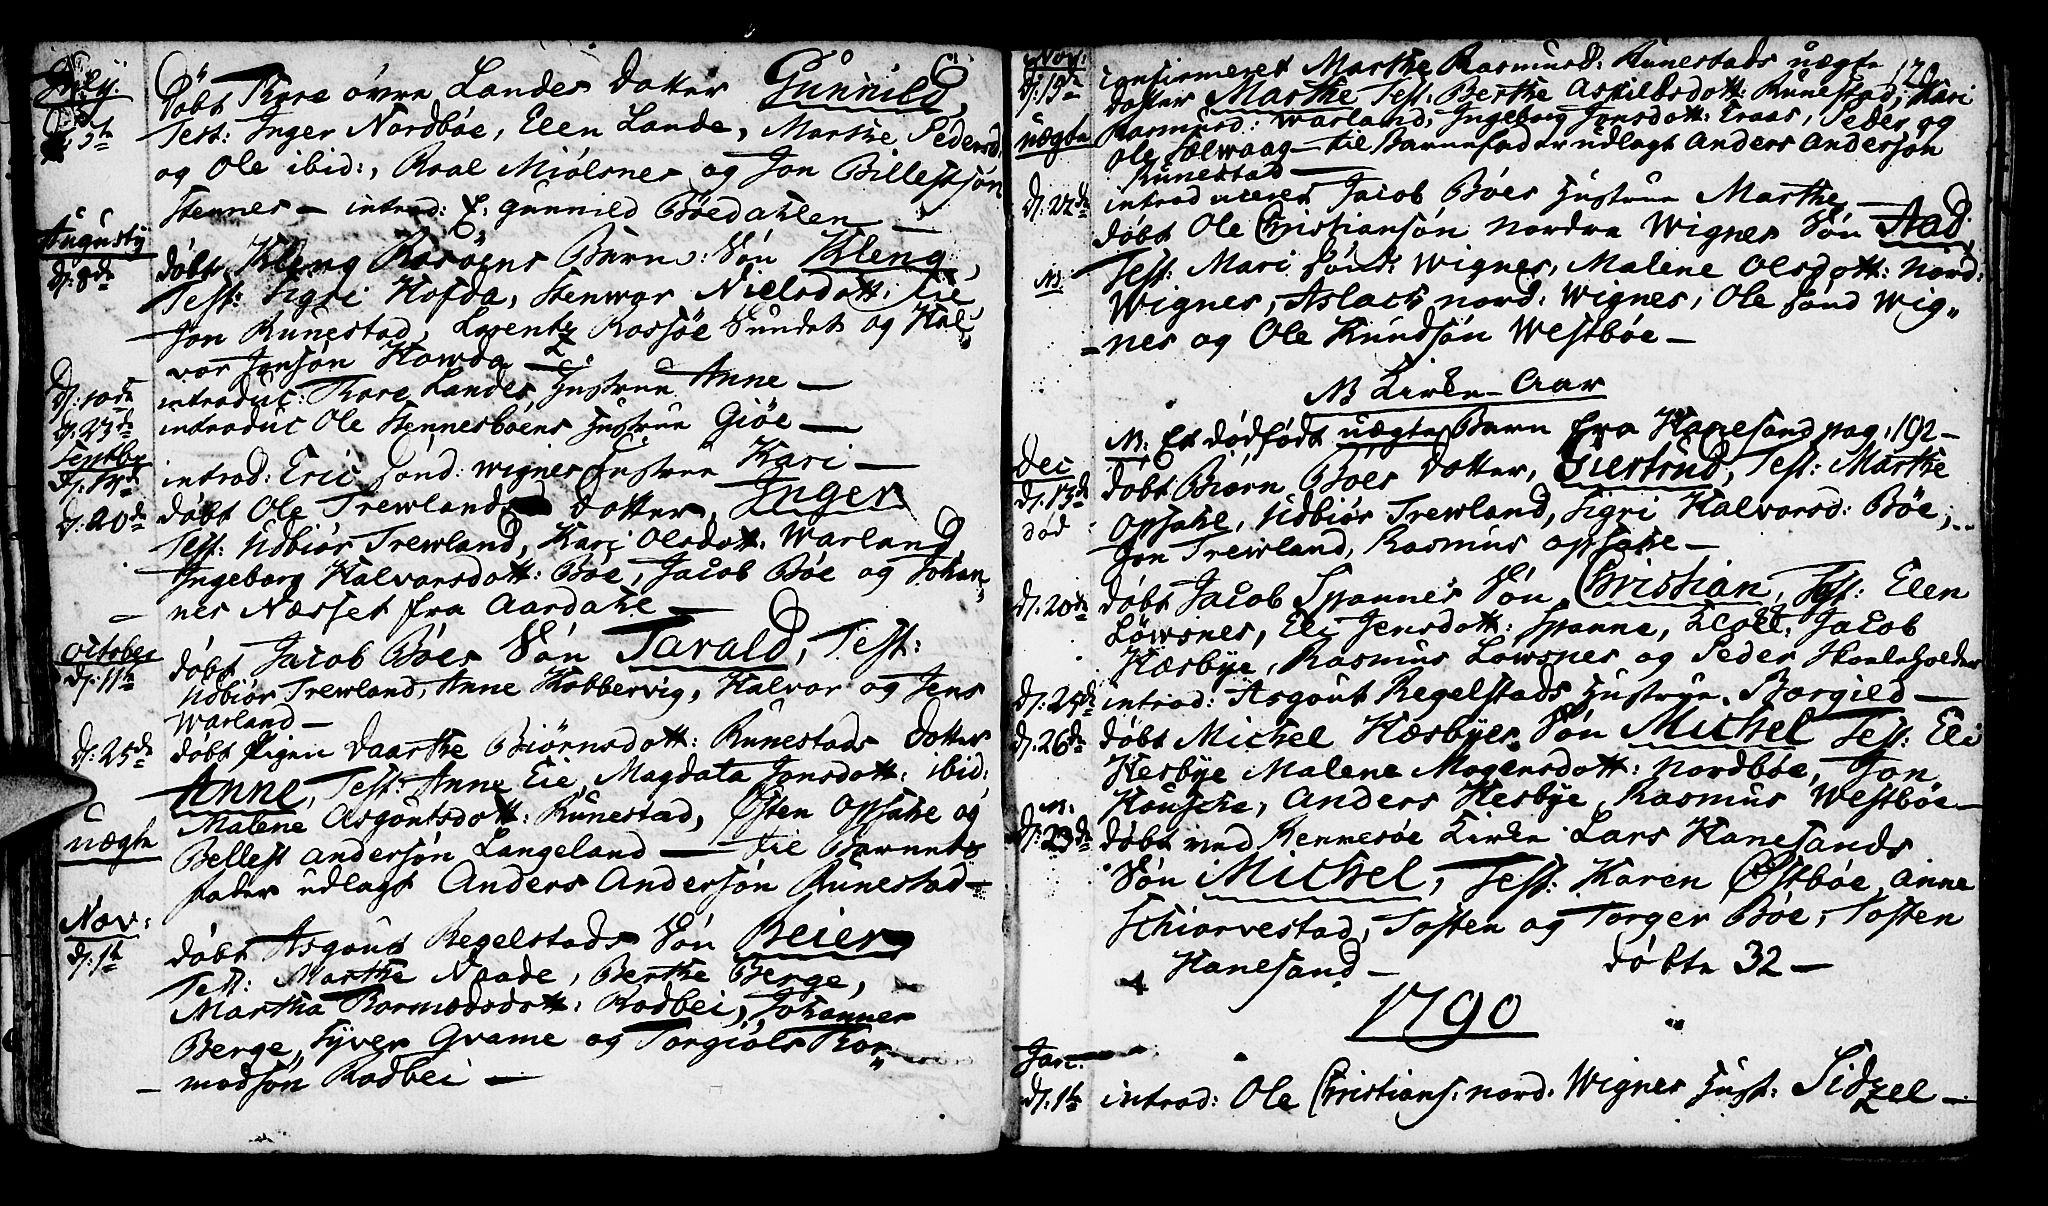 July.
d: 5te
døbt Tore øvre Landes datter Gunnild,
Test: Inger Nordbøe, Elen Lande, Marthe Pedersd
og Ole ibid:, Roal Miølsnes og Jon Billestsøn
Stennes — introd: E: Gunnild Bøedahlen —
Augusty
d: 9de
døbt Kleng Rosøens Barn: Søn Kleng,
Test: Sigri Hofda, Stenwor Nielsdott: Eie
Jon Runestad, Lorentz Rossøe Sundet og Hal„
vor Jonsøn Howda —
d: 10de
introduc: Tore Landes Hustrue Anne —
d: 23de
introduc Ole Stennesbøens Hustrue Giøe —
Septbr
d: 13de
introd: Eric Sønd: Wignes Hustrue Kari —
d: 20de
døbt Ole Trewlands datter, Inger
Test: Udbiør Trewland, Kari Olsdott: Warland
Ingeborg Halvorsdott: Bøe, Jacob Bøe og Johan„
nes Næsset fra Aardahl —
October
d: 11te
døbt Jacob Bøes Søn Tarald, Test:
Udbiør Trewland, Anne Hobbervig, Halvor og Jens
Warland —
d: 25de
døbt Pigen Daarthe Biørnsdott: Runestads Dotter
Anne, Test: Anne Eie, Magdata Jonsdott: ibid:
Malene Asgoutsdott: Runestad, Østen Opsahl og
uægte
Bellest Andersøn Langeland — til Barnets
fader udlagt Anders Andersøn Runestad —
Nov:
d: 1te
døbt Asgout Regelstads Søn Beier
Test: Marthe Naade, Berthe Berge,
Martha Tormodsdott: Rodbei, Johannes
Berge, Syver Grame og Torgiøls Tor„
modsøn Rodbei —
Nov:
d: 15de
confirmeret Marthe Rasmusd: Runestads uægte
129
dotter Marthe Test: Berthe Askildsdott: Runestad, Kari
uægte
Rasmusd: Warland, Ingeborg Jonsdott: Eraas, Peder og
Ole Sælwaag — til Barnefader udlagt Anders Andersøn
Runestad —
d: 22de
introduceret Jacob Bøes Hustrue Marthe —
døbt Ole Christiansøn Nordre Wignes Søn Aad
NB
Test: Mari Sønd: Wignes, Malene Olsdott: Nord:
Wignes, Aslach nord: Wignes, Ole Sønd Wig„
nes og Ole Knudsøn Westbøe —
NB Kirke-Aar
NB: Et dødfødt uægte Barn fra Hanesand pag: 192 —
Dec
d: 13de
død
døbt Biørn Bøes dotter, Giertrud, Test: Marthe
Opsahl, Udbiør Trewland, Sigri Halvorsd: Bøe,
Jon Trewland, Rasmus Opsahl —
d: 20de
døbt Jacob Spannes Søn Christian, Test: Elen
Løwsnes, Eli Jensdott: Spanne, Jacob
Hæsbye, Rasmus Løwsnes og Peder Skoleholder
d: 25de
introd: Asgout Regelstads Hustrue, Borgild —
d: 26de
døbt Michel Hæsbyes Søn Michel Test: Eli
Hesbye Malene Mogensdott: Nordbøe, Jon
Houske, Anders Hesbye, Rasmus Westbøe —
n:
d: 23de
døbt ved Rennesøe Kirke Lars Hanesands
Søn Michel, Test: Karen Østbøe, Anne
Schiorvestad, Tosten og Torger Bøe, Tosten
Hanesand — døbte 32 —
1790
Jan:
d: 1te
introd: Ole Christians: nord: Wignes Hust: Sidzel —